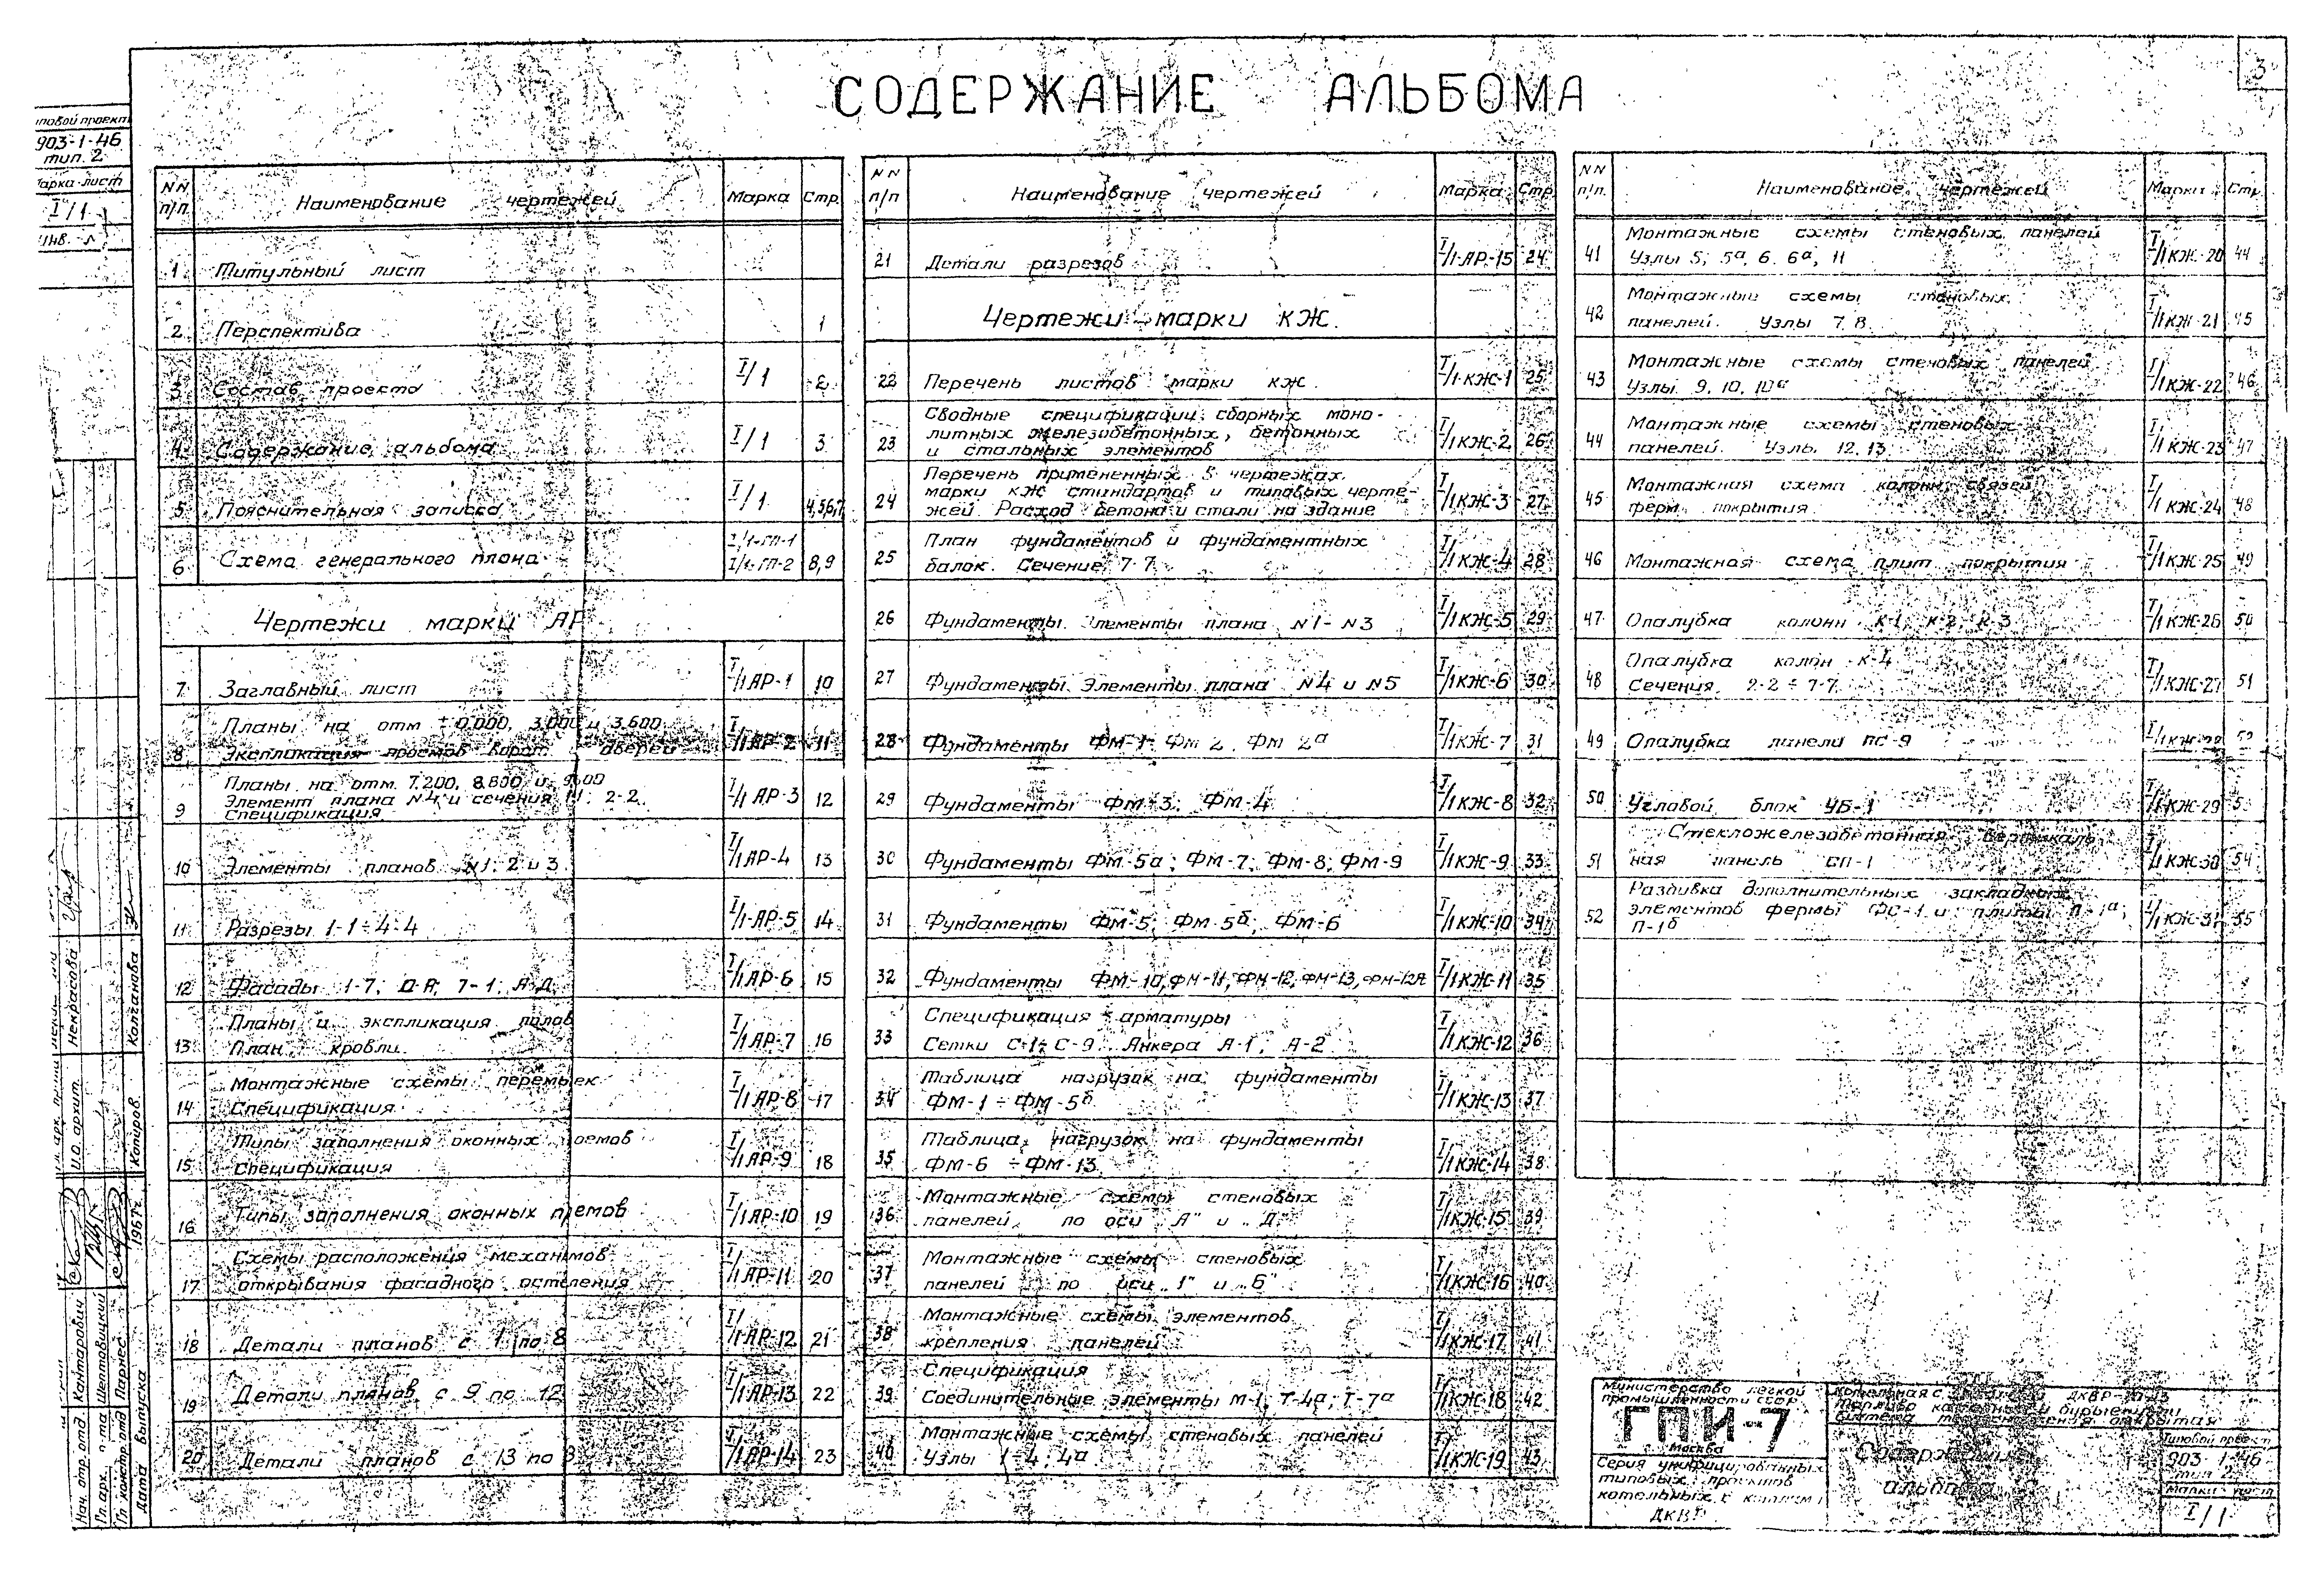 3
СОДЕРЖАНИЕ АЛЬБОМА
903-1-46
тип. 2
I/1
NN п/п Наименование чертежей Марка Стр.
1 Титульный лист
2 Перспектива 1
3 Состав проекта I/1 2
4 Содержание альбома I/1 3
5 Пояснительная записка I/1 4,5,6,7
6 Схема генерального плана I/1-ГП-1 I/1-ГП-2 8,9
Чертежи марки АР
7 Заглавный лист I/1 АР-1 10
8 Планы на отм ±0.000, 3.000 и 3.600
Экспликация проемов ворот дверей I/1 АР-2 11
9 Планы на отм. 7.200, 8.800 и
Элемент плана N4 и сечения 2-2
Спецификация I/1 АР-3 12
10 Элементы планов N1; 2 и 3 I/1 АР-4 13
11 Разрезы 1-1÷4-4 I/1-АР-5 14
12 Фасады 1-7; Д-А; 7-1; А-Д I/1 АР-6 15
13 Планы и экспликация полов
План кровли I/1 АР-7 16
14 Монтажные схемы перемычек
Спецификация I/1 АР-8 17
15 Типы заполнения оконных
Спецификация I/1 АР-9 18
16 Типы заполнения оконных I/1 АР-10 19
17 Схемы расположения
открывания фасадного I/1 АР-11 20
18 Детали планов с 1 по 8 I/1 АР-12 21
19 Детали планов с 9 по 12 I/1 АР-13 22
20 Детали планов с 13 по I/1 АР-14 23
NN п/п Наименование чертежей Марка Стр
21 Детали разрезов I/1-АР-15 24
Чертежи марки КЖ.
22 Перечень листов марки КЖ. I/1-КЖ-1 25
23 Сводные спецификации сборных моно-
литных железобетонных, бетонных
и стальных элементов I/1 КЖ-2 26
24 Перечень примененных в чертежах
марки КЖ стандартов и типовых черте-
жей Расход бетона и стали на здание I/1 КЖ-3 27
25 План фундаментов и фундаментных
балок. Сечение 7-7 I/1 КЖ-4 28
26 Фундаменты. Элементы плана N1-N3 I/1 КЖ-5 29
27 Фундаменты. Элементы плана N4 и N5 I/1 КЖ-6 30
28 Фундаменты ФМ-1; ФМ 2, ФМ 2а I/1 КЖ-7 31
29 Фундаменты ФМ-3; ФМ-4 I/1 КЖ-8 32
30 Фундаменты ФМ-5а; ФМ-7; ФМ-8; ФМ-9 I/1 КЖ-9 33
31 Фундаменты ФМ-5; ФМ-5б; ФМ-6 I/1 КЖ-10 34
32 Фундаменты ФМ-10, ФМ-11, ФМ-12, ФМ-13, ФМ-12А I/1 КЖ-11 35
33 Спецификация арматуры
Сетки С-1÷С-9. Анкера А-1; А-2 I/1 КЖ-12 36
34 Таблица нагрузок на фундаменты
ФМ-1÷ФМ-5б I/1 КЖ-13 37
35 Таблица нагрузок на фундаменты
ФМ-6 ÷ФМ-13 I/1 КЖ-14 38
36 Монтажные схемы стеновых
панелей по оси „А" и „Д" I/1 КЖ-15 39
37 Монтажные схемы стеновых
панелей по оси „1" и „6" I/1 КЖ-16 40
38 Монтажные схемы элементов
крепления панелей I/1 КЖ-17 41
39 Спецификация
Соединительные элементы М-1; Т-4а; Т-7а I/1 КЖ-18 42
40 Монтажные схемы стеновых панелей
Узлы 1÷4; 4а I/1 КЖ-19 43
NN п/п. Наименование чертежей Марка Стр
41 Монтажные схемы стеновых панелей
Узлы 5; 5а, 6, 6а, 11 I/1 КЖ-20 44
42 Монтажные схемы стеновых
панелей. Узлы 7, 8 I/1 КЖ-21 45
43 Монтажные схемы стеновых панелей
Узлы 9, 10, 10а I/1 КЖ-22 46
44 Монтажные схемы стеновых
панелей. Узлы 12, 13 I/1 КЖ-23 47
45 Монтажная схема колонн связей
ферм покрытия I/1 КЖ-24 48
46 Монтажная схема плит покрытия I/1 КЖ-25 49
47 Опалубка колонн К-1; К-2; К-3 I/1 КЖ-26 50
48 Опалубка колонн К-4
Сечения 2-2÷7-7 I/1 КЖ-27 51
49 Опалубка панели ПС-9
50 Угловой блок УБ-1 I/1 КЖ-29
51 Стекложелезобетонная вертикаль-
ная панель СП-1 I/1 КЖ-30 54
52 Разбивка дополнительных закладных
элементов фермы ФС-1 и плиты П-1а;
П-1б I/1 КЖ-31 55
Министерство легкой
промышленности СССР
ГПИ-7
Москва
Серия унифицированных
типовых проектов
котельных с котлами
ДКВР
Содержание
альбома
Типовой проект
903-1-46
тип 2
Марка лист
I/1
Некрасова
Колганова
И.О. архит.
Копиров.
1967г.
Нач. отр. отд. Кантарович
Гл. арх. Шептовицкий
Гл. констр. отд. Парнес
Дата выпуска